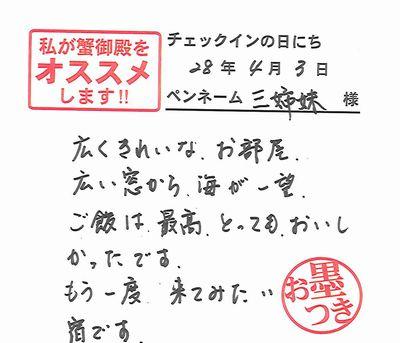 私が蟹御殿を
オススメ
します!!
チェックインの日にち
28年4月3日
ペンネーム 三姉妹 様
広くきれいな、お部屋、
広い窓から、海が一望、
ご飯は、最高、とっても、おいし
かったです、
もう一度、来てみたい
宿です、
お墨つき